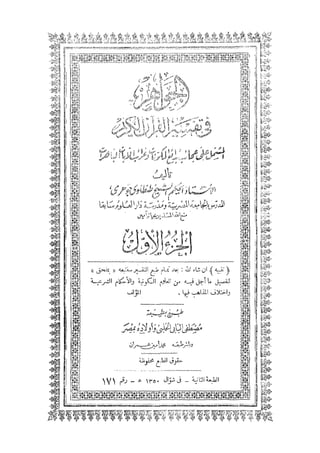 الجواهر
في تفسير القرآن الكريم
المشتمل على عجائب بدائع المكونات وغرائب الآيات الباهرات
تأليف
الأستاذ الحكيم الشيخ طنطاوي جوهري
المدرس بالجامعة المصرية ومدرسة دار العلوم سابقا
متع الله المسلمين بحياته آمين
الجزء الأول
( تنبيه ) ان شاء الله : بعد تمام طبع التفسير سنتبعه « بملحق »
لتفصيل ما أجمل فيه من العلوم الكونية والأحكام الشرعية
واختلاف المذاهب فيها . المؤلف
طبع بمطبعة
مصطفى البابي الحلبي وأولاده بمصر
وباشر طبعه محمد أمين عمران
حقوق الطبع محفوظة
الطبعة الثانية - في شوال ١٣٥٠ ه - رقم ١٧١